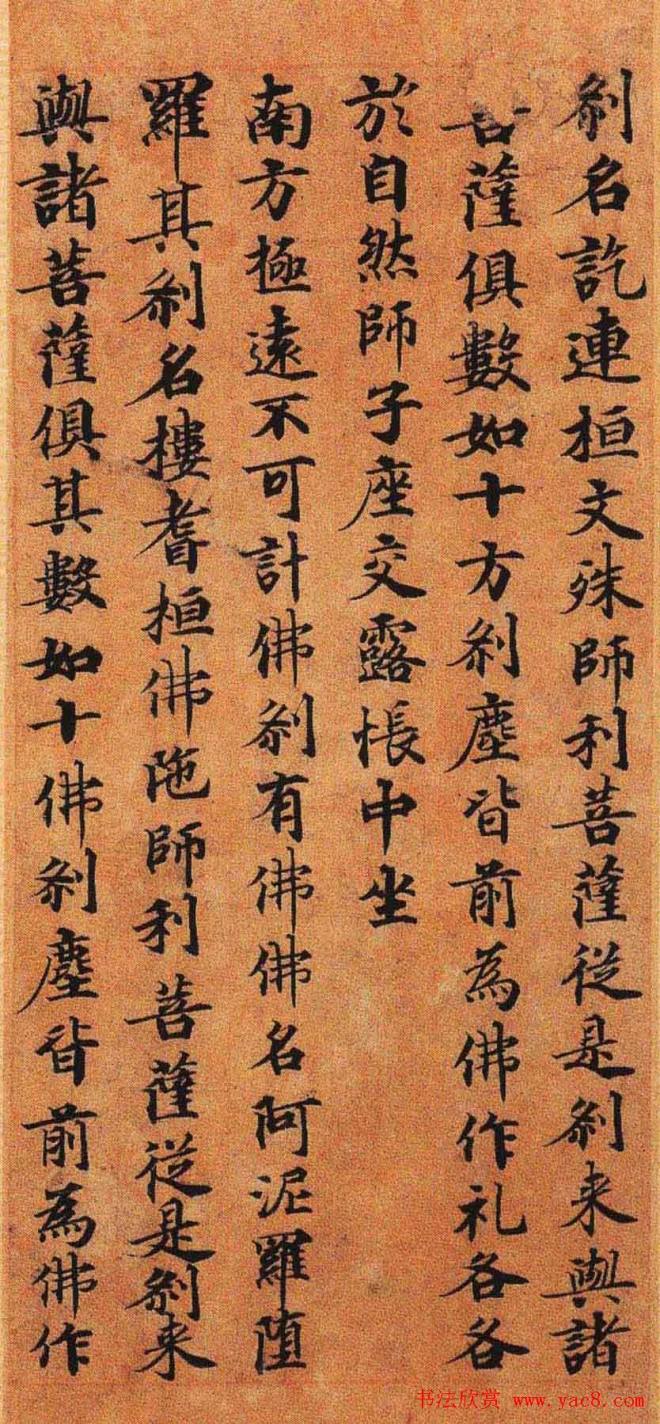 刹名訖連桓文殊師利菩薩從是刹来與諸
菩薩俱數如十方刹塵皆前為佛作礼各各
於自然師子座交露帳中坐
南方極遠不可計佛刹有佛佛名阿泥羅堕
羅其刹名樓耆桓佛陁師利菩薩從是刹来
與諸菩薩俱其數如十佛刹塵皆前為佛作
书法欣赏 www.yac8.com